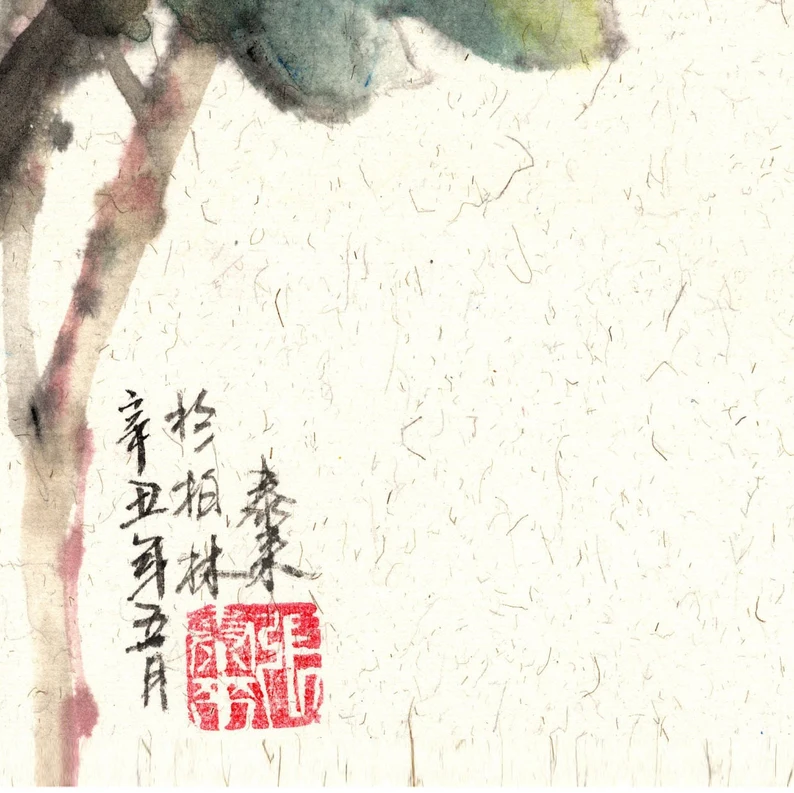 泰来
於柏林
辛丑年五月